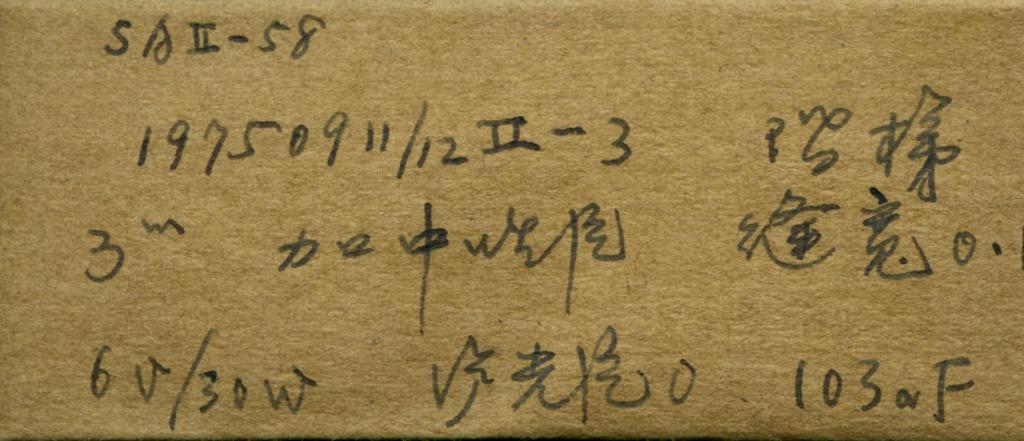 SAⅡ-58
19750911/12 Ⅱ-3 阶梯
3ᵐ 加中性片 缝宽0.
6V/30W 光 0 103aF